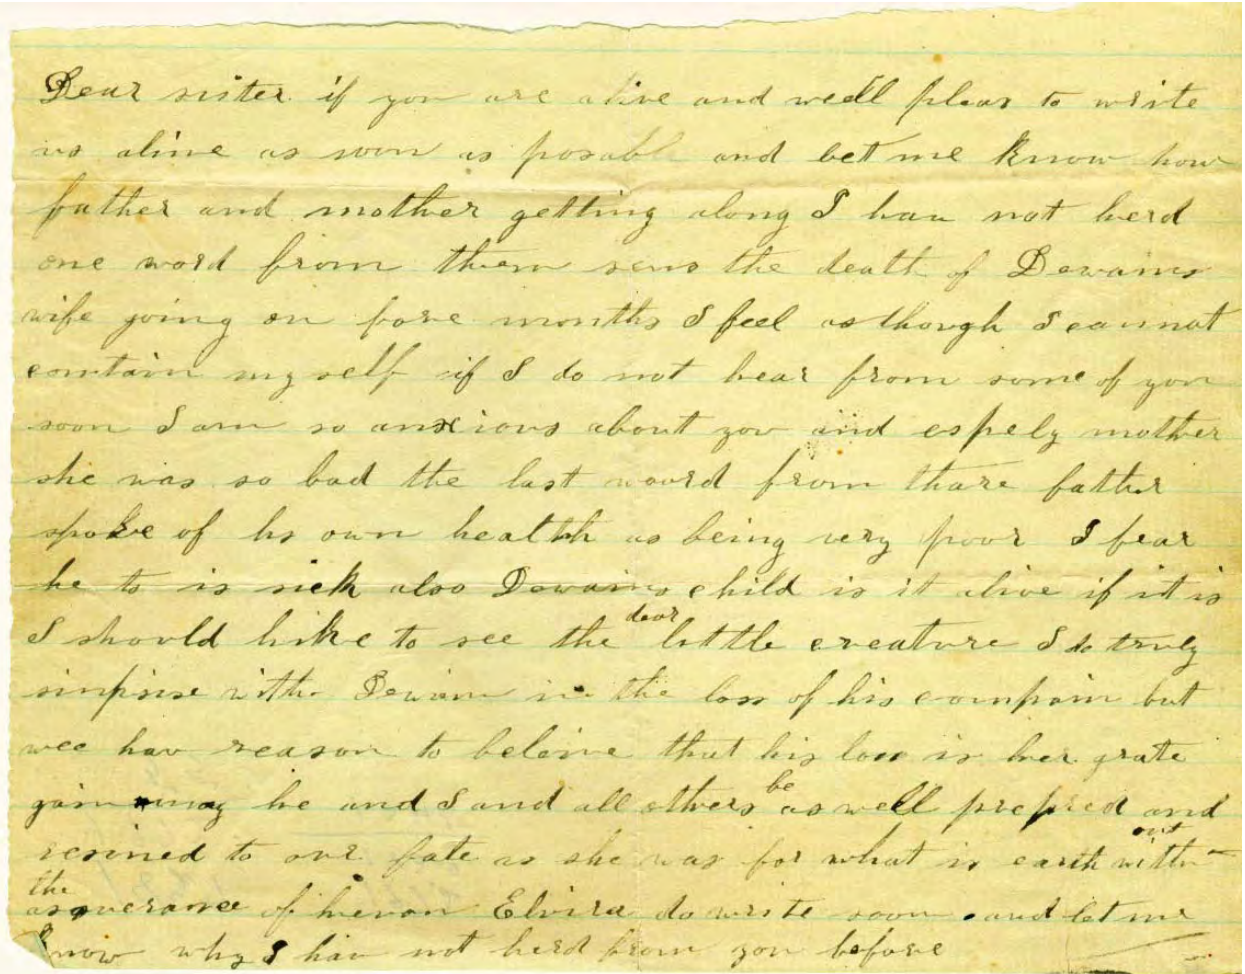 Dear sister if you are alive and well pleas to write
us aline as soon as posabl and let me know how
father and mother getting along I hav not herd
one word from them sens the death of Dewains
wife going on fore months I feel as though I cannot
contain my self if I do not hear from some of you
soon I am so anxious about you and espely mother
she was so bad the last woord from thare father
spoke of his own health as being very poor I fear
he to is sick also Dewains child is it alive if it is
I should like to see the dear little creature I do truly
simpise with Dewain in the loss of his compain but
wee hav reason to beleive that his loss is her grate
gain may he and I and all others be as well prepred and
resined to our fate as she was for what is earth without
the asurance of hevon Elvira do write soon and let me
know why I hav not herd from you before